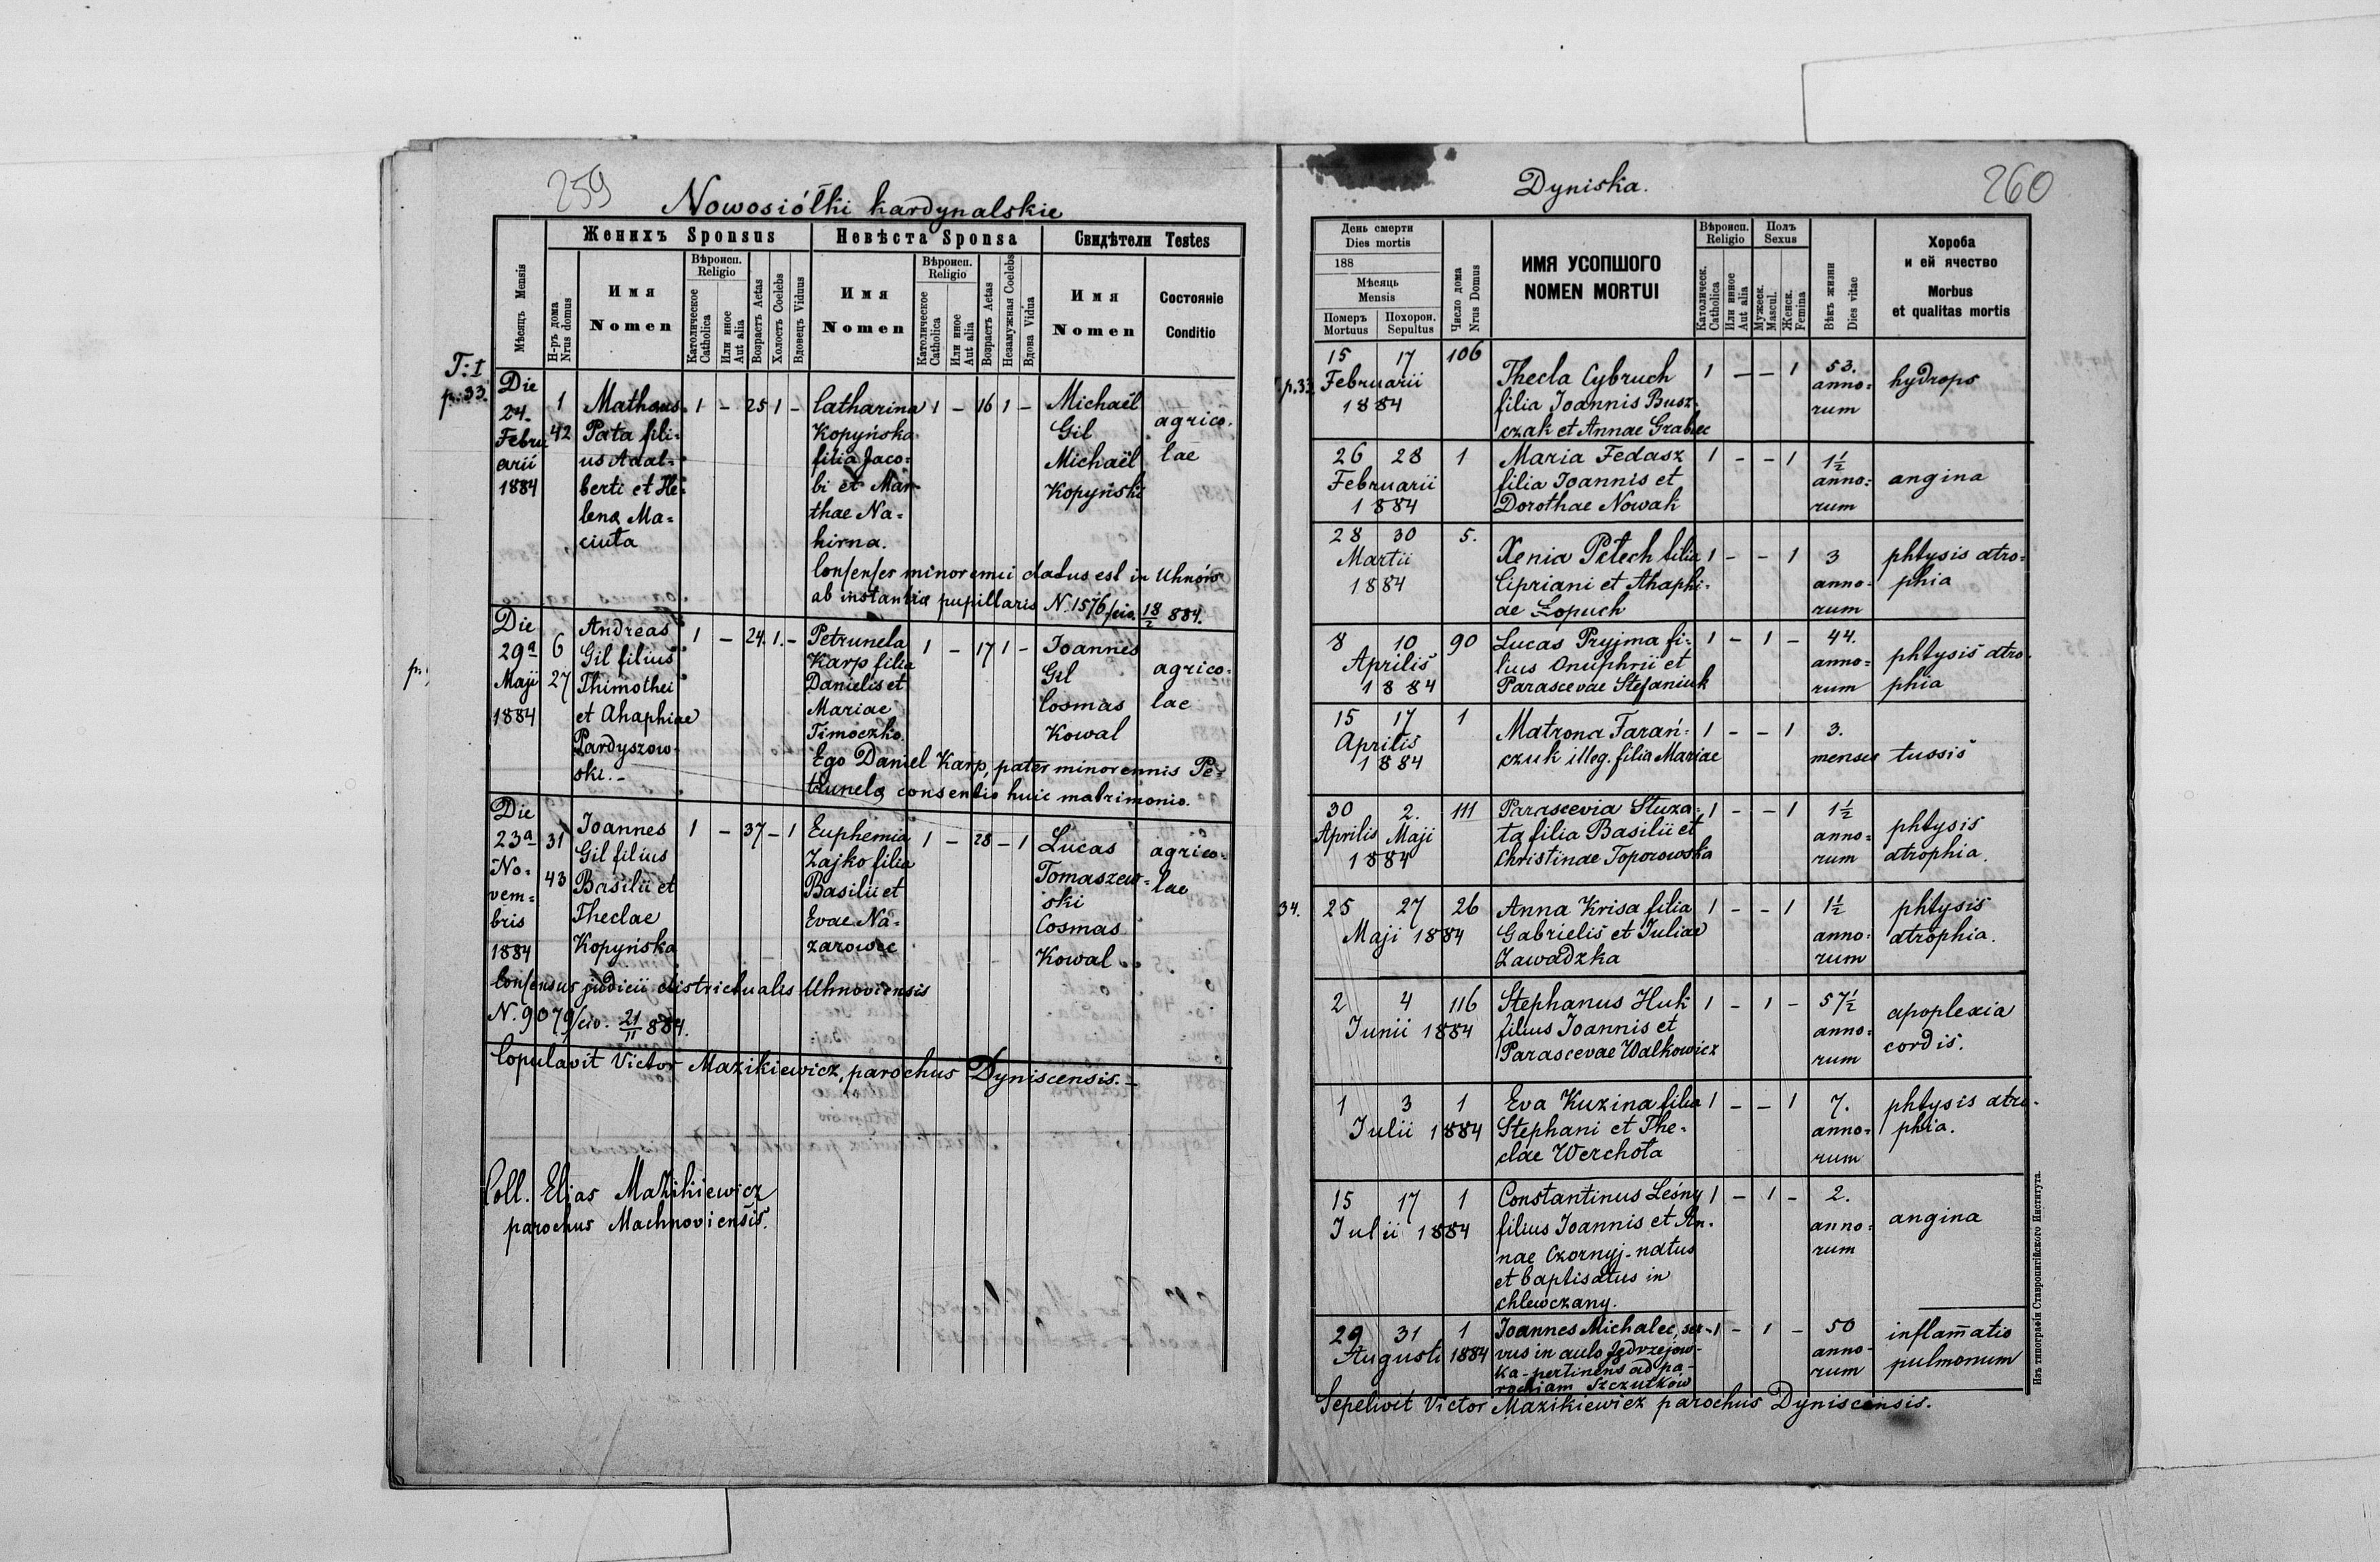 259
Nowosiółki kardynalskie
Мѣсяць Mensis
Женихъ Sponsus
Невѣста Sponsa
Свидѣтели Testes
Н-ръ дома
Nrus domus
Имя
Nomen
Вѣроисп.
Religio
Католическое
Catholica
Или иное
Aut alia
Возрастъ Aetas
Холостъ Coelebs
Вдовецъ Viduus
Имя
Nomen
Вѣроисп.
Religio
Католическое
Catholica
Или иное
Aut alia
Возрастъ Aetas
Незамужная Coelebs
Вдова Vidua
Имя
Nomen
Состояніе
Conditio
T: I
p: 33.
Die
24.
Febru
arii
1884
1
42
Mathaeus
Pata fili-
us Adal-
berti et He-
lena Ma-
ciuta
1 - 25 1 -
Catharina
Kopyńska
filia Jaco-
bi et Mar-
thae Na-
hirna.
1 - 16 1 -
Michaël
Gil
Michaël
Kopyński
agrico-
lae
Consenses minorennii datus est in Uhnów
ab instantia pupillaris N. 1576/civ. 18/2 884.
p:
Die
29ª
Maji
1884
6
27
Andreas
Gil filius
Thimothei
et Ahaphiae
Pardyszow-
ski. -
1 - 24. 1. -
Petrunela
Karp filia
Danielis et
Mariae
Timoczko.
1 - 17 1 -
Joannes
Gil
Cosmas
Kowal
agrico-
lae
Ego Daniel Karp, pater minorennis Pe-
trunela consentio huic matrimonio.
Die
23ª
No-
vem-
bris
1884
31
43
Joannes
Gil filius
Basilii et
Theclae
Kopyńska
1 - 37 - 1
Euphemia
Zajko filia
Basilii et
Evae Na-
zarowec
1 - 28 - 1
Lucas
Tomaszew-
ski
Cosmas
Kowal
agrico-
lae
Consensus judicii districtuales Uhnoviensis
N. 9079/civ. 21/11 884.
Copulavit Victor Mazikiewicz, parochus Dyniscensis. -
Coll. Elias Mazikiewicz
parochus Machnoviensis.
260
Dyniska.
День смерти
Dies mortis
188
Мѣсяць
Mensis
Померъ
Mortuus
Похорон.
Sepultus
Число дома
Nrus Domus
ИМЯ УСОПШОГО
NOMEN MORTUI
Вѣроисп.
Religio
Католическ.
Catholica
Или инное
Aut alia
Полъ
Sexus
Мужеск.
Mascul.
Женск.
Femina
Вѣкъ жизни
Dies vitae
Хороба
и ей ячество
Morbus
et qualitas mortis
p. 33
15 17 106
Februarii
1884
Thecla Cybruch
filia Joannis Busz-
czak et Annae Grabiec
1 - - 1
53.
anno-
rum
hydrops
26 28 1
Februarii
1884
Maria Fedasz
filia Joannis et
Dorothae Nowak
1 - - 1
1½
anno-
rum
angina
28 30 5.
Martii
1884
Xenia Pelech filia
Cipriani et Ahaphi-
ae Łopuch
1 - - 1
3
anno-
rum
phtysis atro-
phia
8 10 90
Aprilis
1884
Lucas Pryjma fi-
lius Onuphrii et
Parascevae Stefaniuk
1 - 1 -
44.
anno-
rum
phtysis atro-
phia
15 17 1
Aprilis
1884
Matrona Farań-
czuk illeg. filia Mariae
1 - - 1
3.
menses
tussis
30 2. 111
Aprilis Maji
1884
Parascevia Stuza-
ta filia Basilii et
Christinae Toporowska
1 - - 1
1½
anno-
rum
phtysis
atrophia.
34.
25 27 26
Maji 1884
Anna Krisa filia
Gabrielis et Juliae
Zawadzka
1 - - 1
1½
anno-
rum
phtysis
atrophia.
2 4 116
Junii 1884
Stephanus Huk
filius Joannis et
Parascevae Walkowicz
1 - 1 -
57½
anno-
rum
apoplexia
cordis.
1 3 1
Julii 1884
Eva Kuzina filia
Stephani et The-
clae Werchota
1 - - 1
7.
anno-
rum
phtysis atro-
phia.
15 17 1
Julii 1884
Constantinus Leśny
filius Joannis et An-
nae Czornyj - natus
et baptisatus in
Chlewczany.
1 - 1 -
2.
anno-
rum
angina
29 31 1
Augusti 1884
Joannes Michalec, ser-
vus in aulo Jędrzejow-
ka - pertinens ad pa-
rochiam Szczutków
1 - 1 -
50
anno-
rum
inflam̄atio
pulmonum
Sepelivit Victor Mazikiewicz parochus Dyniscensis.
Изъ типографіи Ставропигійского Института.